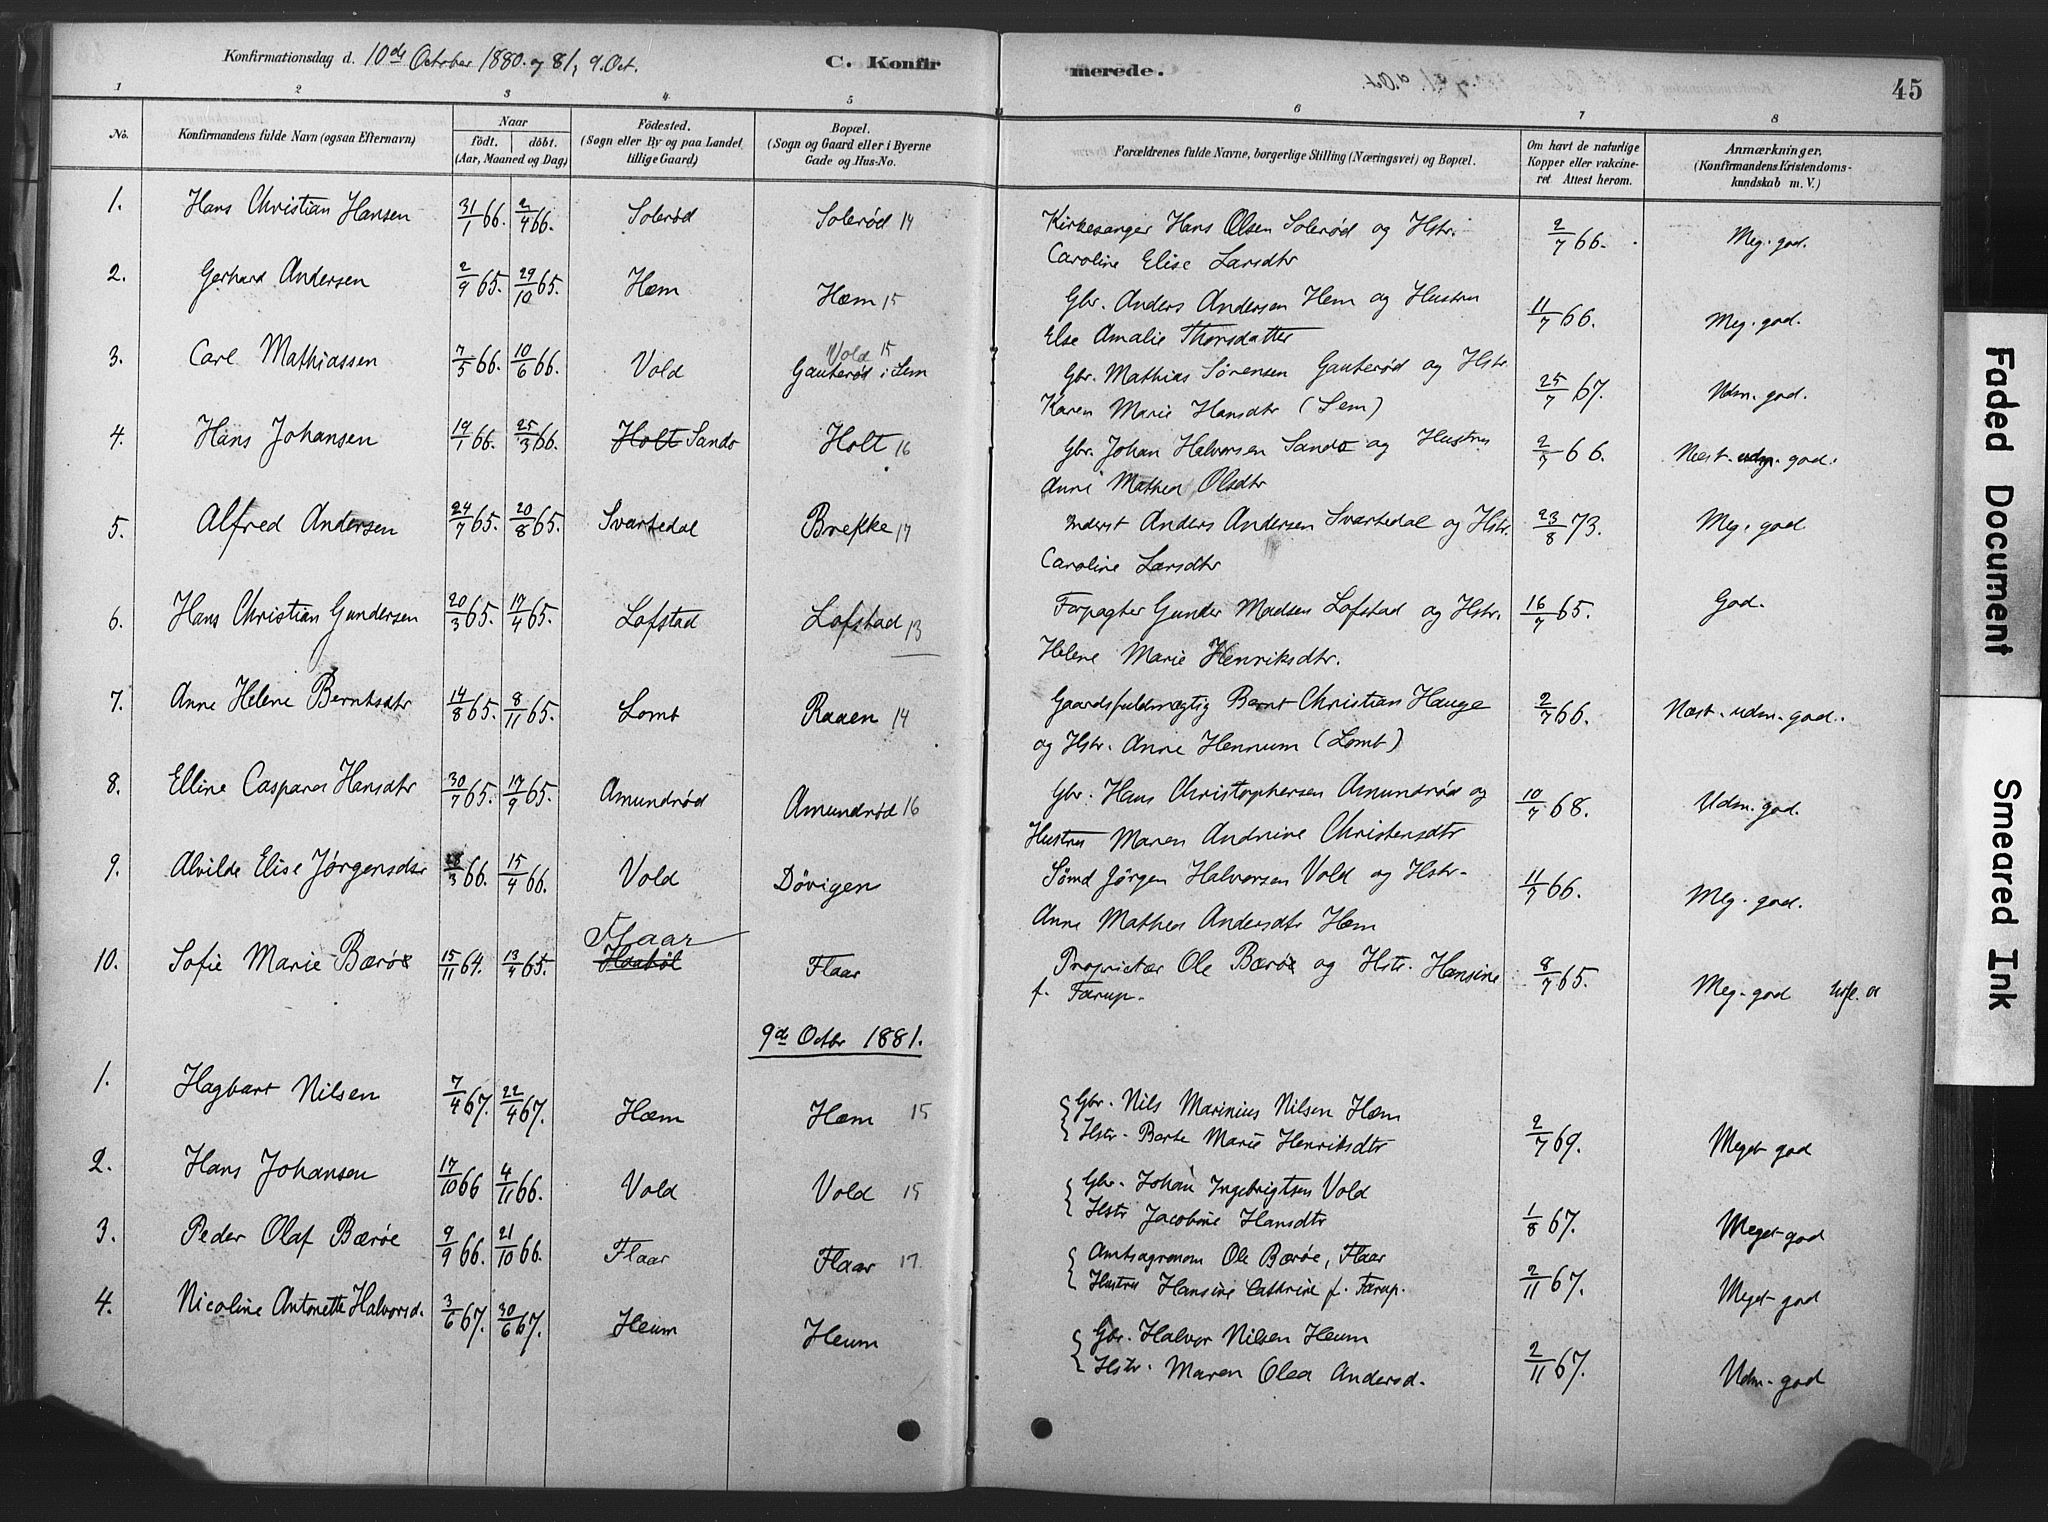 Konfirmationsdag d. 10de October 1880. og 81, 9. Oct.
C. Konfirmerede.
45
1 2 3 4 5 6 7 8
No. Konfirmandens fulde Navn (ogsaa Efternavn) Naar født. døbt. (Aar, Maaned og Dag) Fødested. (Sogn eller By og paa Landet tillige Gaard) Bopæl. (Sogn og Gaard eller i Byerne Gade og Hus-No. Forældrenes fulde Navne, borgerlige Stilling (Næringsvei) og Bopæl. Om havt de naturlige Kopper eller vakcineret Attest herom. Anmærkninger. (Konfirmandens Kristendomskundskab m. V.)
1. Hans Christian Hansen 31/1 66. 2/4 66. Solerød Solerød 14 Kirkesanger Hans Olsen Solerød og Hstr. 2/7 66. Meg. god.
Caroline Elise Larsdtr
2. Gerhard Andersen 2/9 65. 29/10 65. Hæm Hæm 15 Gbr. Anders Andersen Hem og Hustru 11/7 66. Meg. god.
Else Amalie Thorsdatter
3. Carl Mathiassen 7/5 66. 10/6 66. Vold Vold 15 Gauterød i Sem Gbr. Mathias Sørensen Gauterød og Hstr 25/7 67. Udm. god.
Karen Marie Hansdtr (Sem)
4. Hans Johansen 19/1 66. 25/3 66. Holt Sando Holt 16 Gbr. Johan Halvorsen Sando og Hustru 2/7 66. Næst. udm. god.
Anne Mathea Olsdtr
5. Alfred Andersen 24/7 65. 20/8 65. Svartedal Brekke 14 Inderst Anders Andersen Svartedal og Hstr. 23/8 73. Meg. god
Caroline Larsdtr
6. Hans Christian Gundersen 20/3 65. 17/4 65. Lofstad Lofstad 13 Forpagter Gunder Madsen Lofstad og Hstr. 16/7 65. God.
Helene Marie Henriksdtr.
7. Anne Helene Berntsdtr 14/8 65. 8/11 65. Lomt Raaen 14 Gaardsfuldmægtig Bernt Christian Hauge 2/7 66. Næst. udm. god.
og Hstr. Anne Hennum (Lomt)
8. Elline Caspara Hansdtr 30/7 65. 17/9 65. Amundrød Amundrød 16 Gbr. Hans Christophersen Amundrød og 10/7 68. Udm. god.
Hustru Maren Andrine Christensdtr
9. Alvilde Elise Jørgensdtr 28/3 66. 15/4 66. Vold Døvigen Sømd Jørgen Halvorsen Vold og Hstr. 11/7 66. Meg. god.
Anne Mathea Andersdtr Hæm
10. Sofie Marie Bærøe 15/11 64. 13/4 65. Flaar Flaar Proprietær Ole Bærøe og Hstr. Hansine 8/7 65. Meg. god
f. Færup.
9de Octbr 1881.
1. Hagbart Nilsen 7/4 67. 22/4 67. Hæm Hæm 15 Gbr. Nils Marinius Nilsen Hæm
Hstr. Berte Marie Henriksdtr 2/7 69. Meget god
2. Hans Johansen 17/10 66 4/11 66. Vold Vold 15 Gbr. Johan Ingebrigtsen Vold
Hstr Jacobine Hansdtr 1/8 67. Meget god
3. Peder Olaf Bærøe 9/9 66. 21/10 66. Flaar Flaar 17 Amtsagronom Ole Bærøe, Flaar
Hustru Hansine Cathrine f. Færup. 2/11 67. Meget god
4. Nicoline Antonette Halvorsd. 3/6 67. 30/6 67. Heum Heum Gbr. Halvor Nilsen Heum
Hstr. Maren Olea Andersd. 2/11 67. Udm. god
Faded Document
Smeared Ink